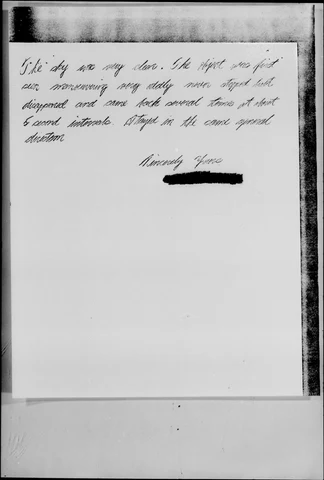 The sky was very clear. The object was first
seen maneuvering very oddly never stoped but
disapeared and came back several times at about
5 second intervals. Stayed in the same general
direction
Sincerely Yours